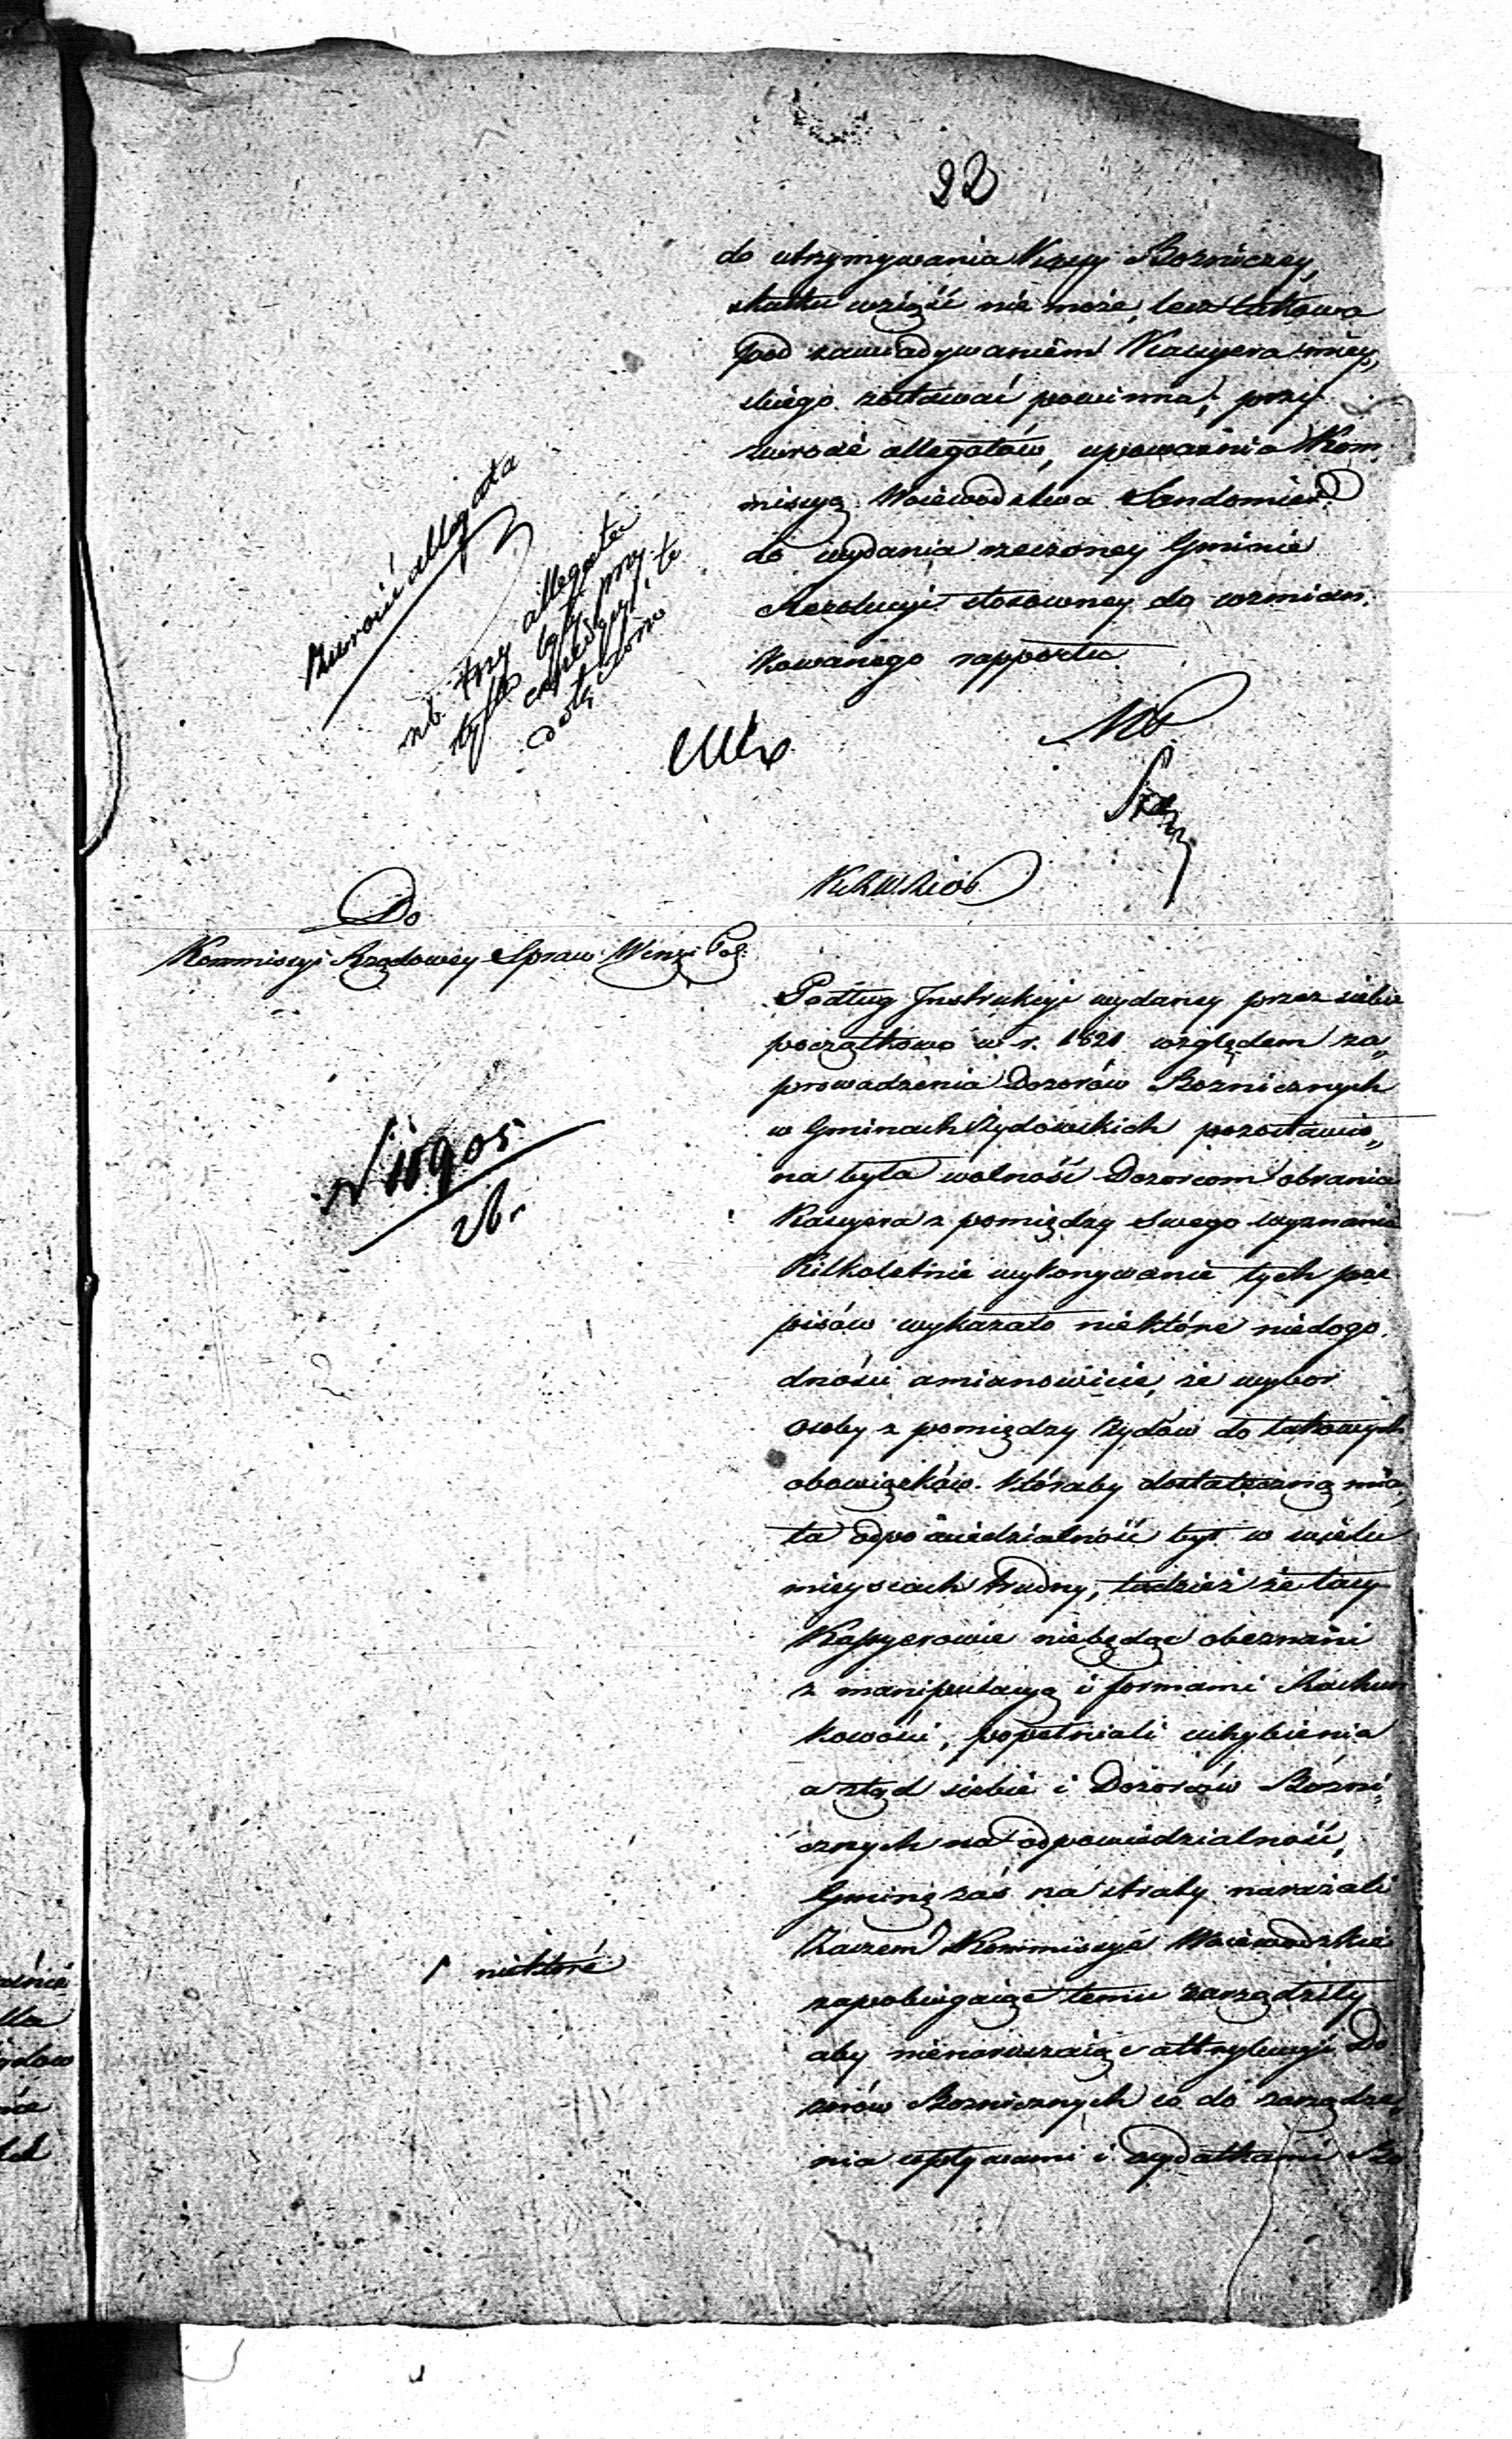 22
do utrzymywania Kassy Bozniczey,
skutku wziąść nie może, lecz takowa
pod zawiadywaniem Kassyera miey„
skiego zostawać powinna; przy
zwrocie allegatów, upoważnia Kom„
missyą Woiewództwa Sandomier:
do wydania rzeczoney Gminie
Rezolucyi stosowney do wzmian„
kowanego rapportu.
Zwrócić allegata
nb. trzy allegata
tylko były przy
expedycyi, te
dołączono
Do
Kommissyi Rządowey Spraw Wewn: i Pol:
Podług Instrukcyi wydaney przez siebie
początkowo w r. 1821 względem za„
prowadzenia Dozorów Bóżnicznych
w Gminach Żydowskich pozostawio„
na była wolność Dozorcom obrania
Kassyera z pomiędzy swego wyznania
Kilkoletnie wykonywanie tych prze
pisów wykazało niektóre niedogo„
dności a mianowicie, że wybór
osoby z pomiędzy Żydów do takowych
obowiązków, któraby dostateczną mia„
ła odpowiedzialność był w wielu
mieyscach trudny, tudzież że tacy
Kassyerowie niebędąc obeznani
z manipulacyą i formami Rachun
kowości, popełniali uchybienia
a ztąd siebie i Dozorców Bóżni„
cznych na odpowiedzialność,
Gminę zaś na straty narażali
Zaczem Kommissye Woiewódzkie
niektóre
zapobiegaiąc temu zarządziły
aby nienaruszaiąc attrybucyi Do
zorów Bozniczných co do zarządze„
nia wpływami i wydatkami Bo